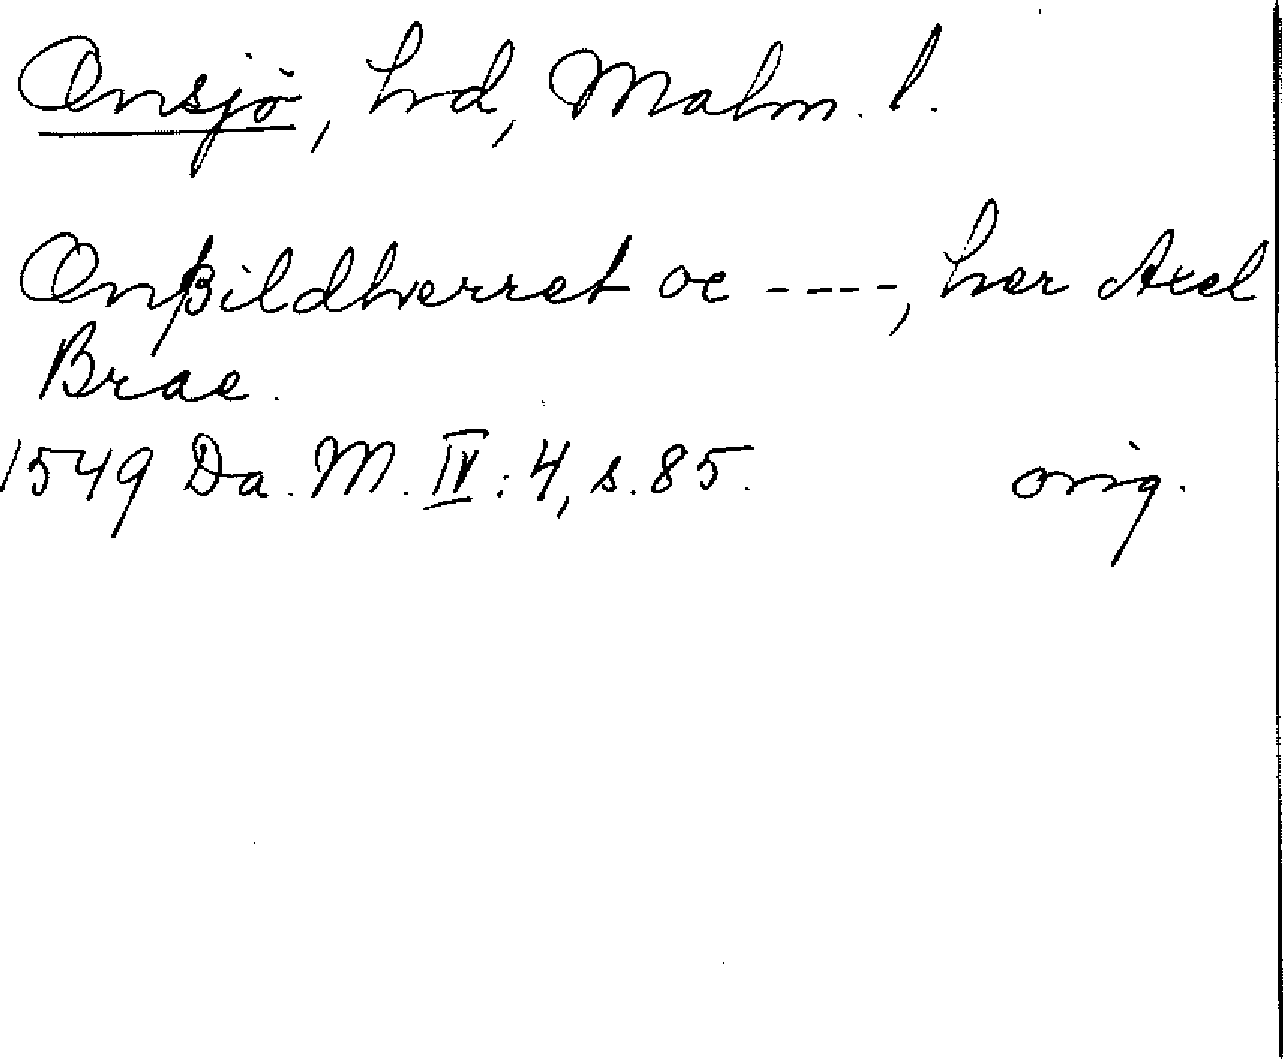 Onsjö, hrd, Malm. l.
Onßildherret oc ----, har Axel
Brae.
1549 Da. M. IV: 4, s. 85. orig.